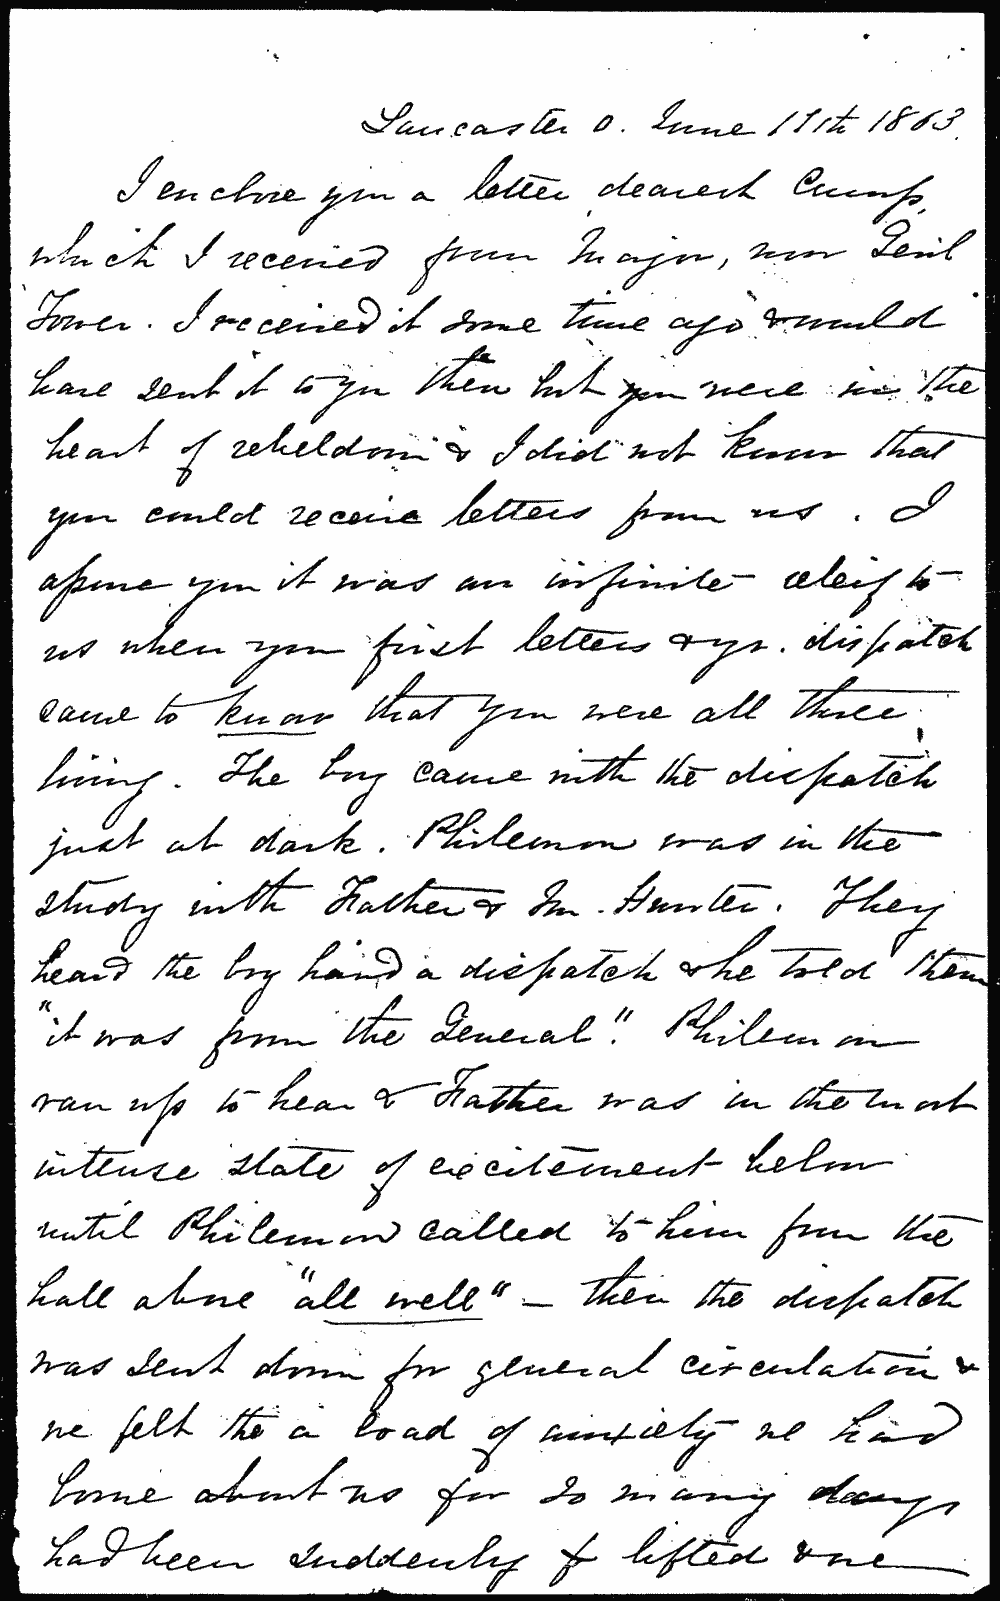 Lancaster O. June 11th 1863.
I enclose you a letter, dearest Cump,
which I received from Major, now Genl
Tower. I received it some time ago & would
have sent it to you then but you were in the
heart of rebeldom & I did not know that
you could receive letters from us. I
assure you it was an infinite releif to
us when your first letters & yr. dispatch
came to know that you were all three
living. The boy came with the dispatch
just at dark. Philemon was in the
study with Father & Mr. Hunter. They
heard the boy hand a dispatch & he told them
"it was from the General". Philemon
ran up to hear & Father was in the most
intense state of excitement below
until Philemon called to him from the
hall above "all well" — then the dispatch
was sent down for general circulation &
we felt the a load of anxiety we had
borne about us for so many days
had been suddenly lifted & we